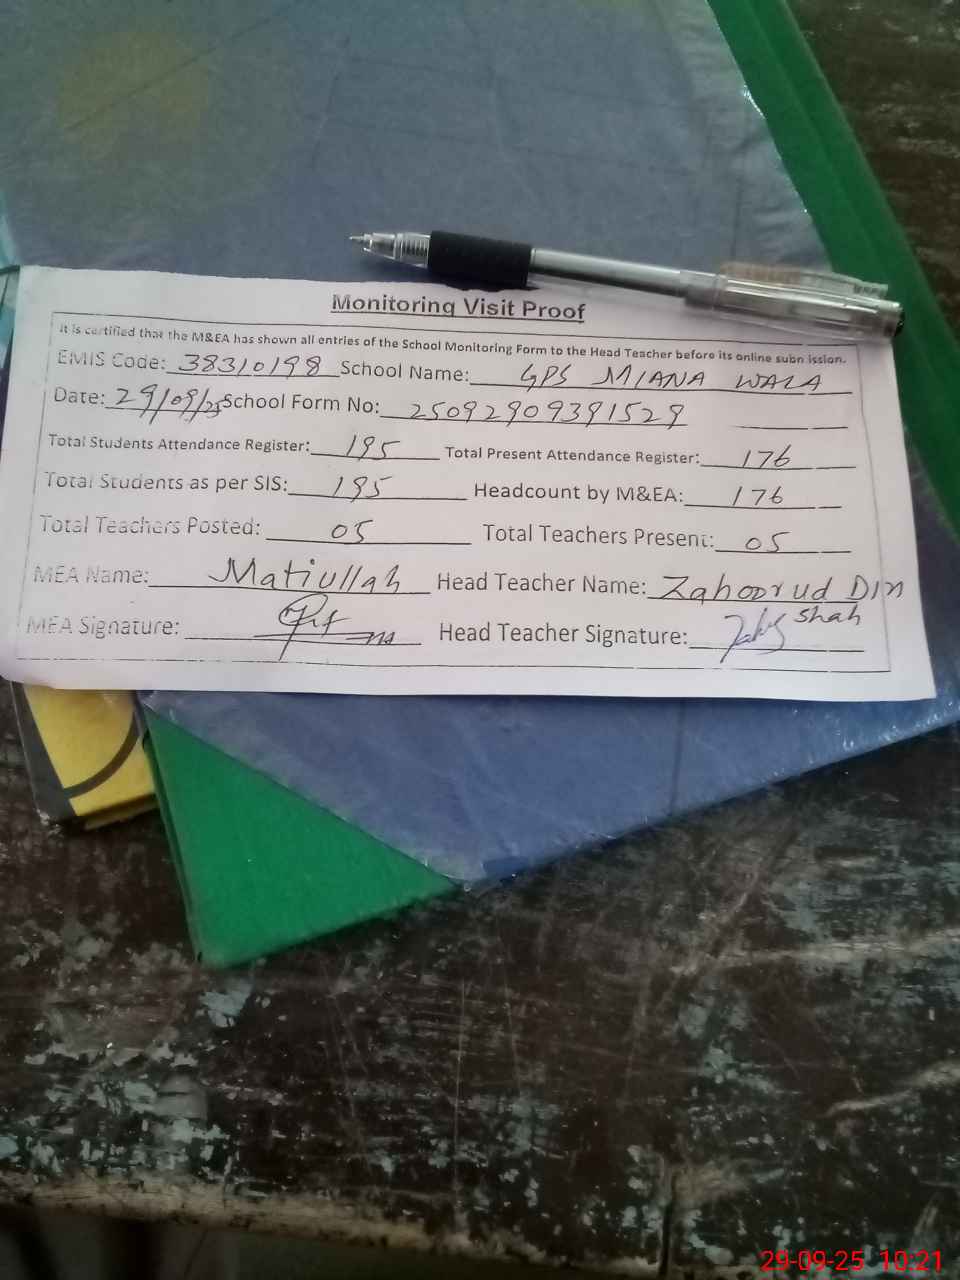 Monitoring Visit Proof
It is certified that the M&EA has shown all entries of the School Monitoring Form to the Head Teacher before its online subn ission.
EMIS Code: 38310198 School Name: GPS MIANA WALA
Date: 29/09/25 School Form No: 25092909391529
Total Students Attendance Register: 195 Total Present Attendance Register: 176
Total Students as per SIS: 195 Headcount by M&EA: 176
Total Teachers Posted: 05 Total Teachers Present: 05
MEA Name: Matiullah Head Teacher Name: Zahoor ud Din
Shah
MEA Signature: Head Teacher Signature:
29-09-25 10:21